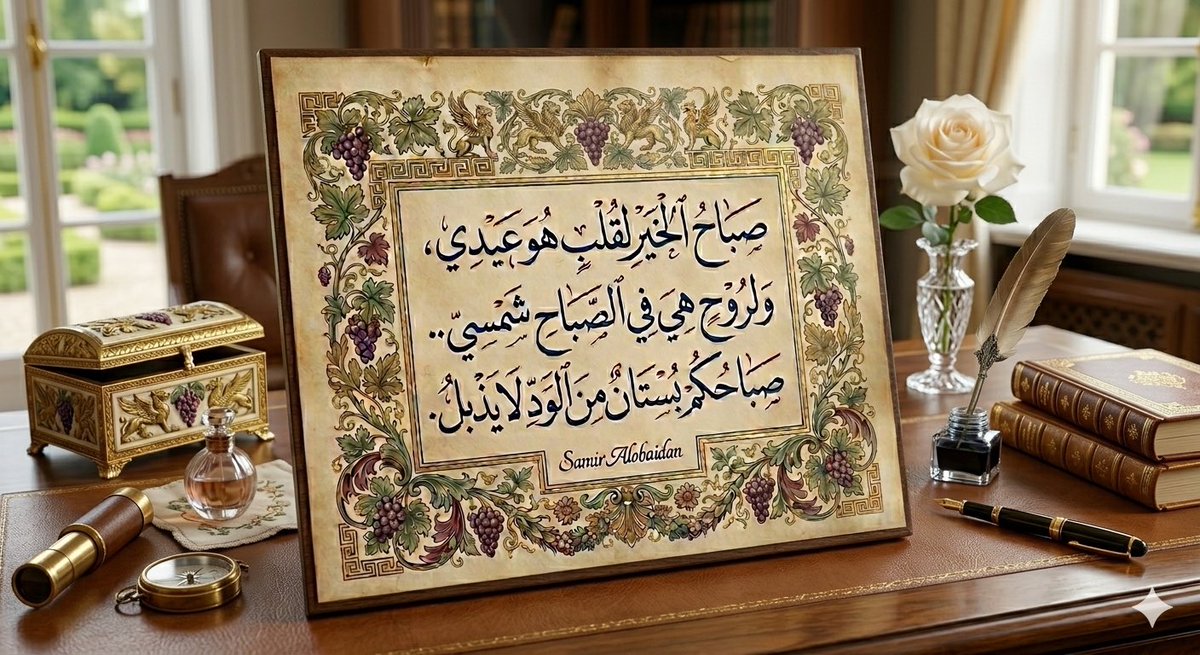 صَبَاحُ الْخَيْرِ لِقَلْبٍ هُوَ عَيْدِي،
وَلِرُوحٍ هِيَ فِي الصَّبَاحِ شَمْسِيّ..
صَبَاحُكُمْ بُسْتَانٌ مِنَ الْوَدِّ لَا يَذْبُلُ.
Samir Alobaidan